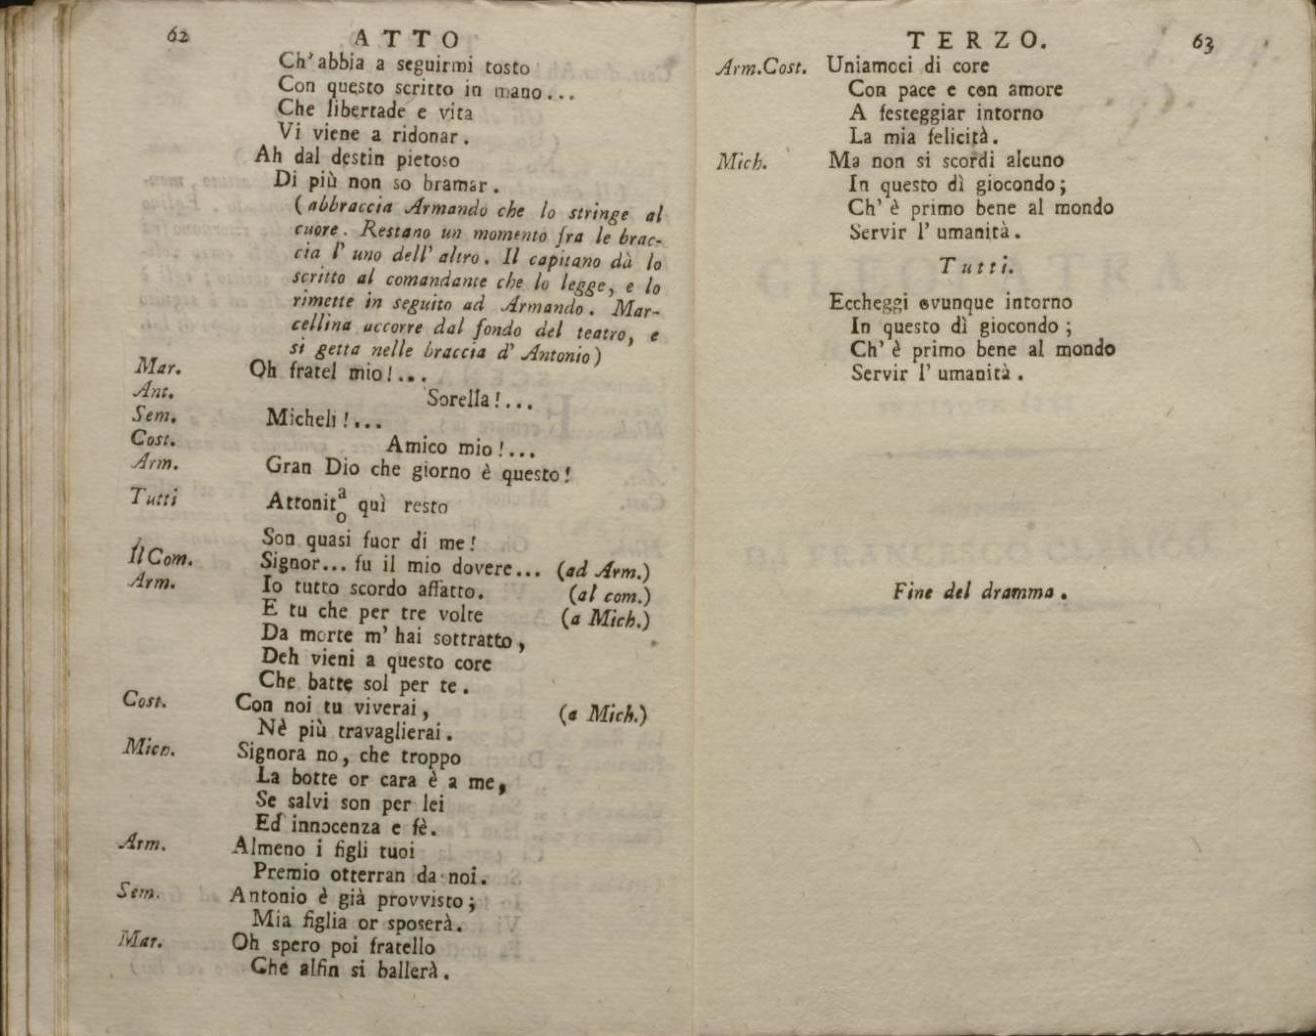 62
ATTO
Ch'abbia a seguirmi tosto
Con questo scritto in mano...
Che libertade e vita
Vi viene a ridonar.
Ah dal destin pietoso
Di più non so bramar.
(abbraccia Armando che lo stringe al
cuore. Restano un momento fra le brac-
cia l' uno dell' altro. Il capitano dà lo
scritto al comandante che lo legge, e lo
rimette in seguito ad Armando. Mar-
cellina accorre dal fondo del teatro, e
si getta nelle braccia d' Antonio)
Mar. Oh fratel mio!...
Ant. Sorella!...
Sem. Micheli!...
Cost. Amico mio!...
Arm. Gran Dio che giorno è questo!
Tutti Attonit a/o quì resto
Son quasi fuor di me!
Il Com. Signor... fu il mio dovere... (ad Arm.)
Arm. Io tutto scordo affatto. (al com.)
E tu che per tre volte (a Mich.)
Da morte m' hai sottratto,
Deh vieni a questo core
Che batte sol per te.
Cost. Con noi tu viverai, (a Mich.)
Nè più travaglierai.
Mich. Signora no, che troppo
La botte or cara è a me,
Se salvi son per lei
Ed innocenza e fè.
Arm. Almeno i figli tuoi
Premio otterran da noi.
Sem. Antonio è già provvisto;
Mia figlia or sposerà.
Mar. Oh spero poi fratello
Che alfin si ballerà.
TERZO.
63
Arm.Cost. Uniamoci di core
Con pace e con amore
A festeggiar intorno
La mia felicità.
Mich. Ma non si scordi alcuno
In questo dì giocondo;
Ch' è primo bene al mondo
Servir l' umanità.
Tutti.
Eccheggi ovunque intorno
In questo dì giocondo;
Ch' è primo bene al mondo
Servir l' umanità.
Fine del dramma.